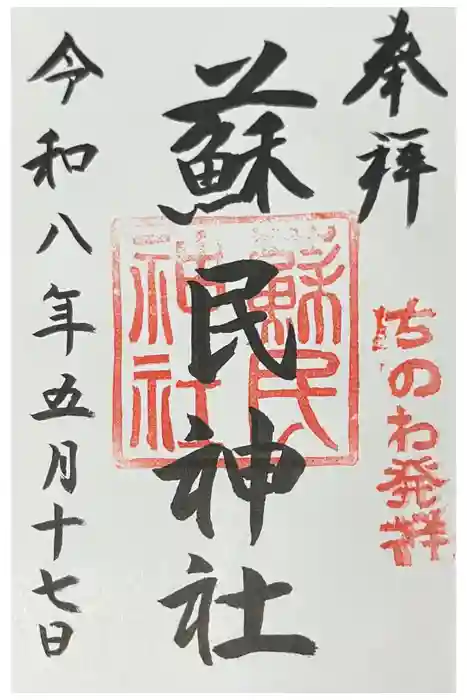 奉拝
ちのわ発祥
蘇民神社
蘇民神社
令和八年五月十七日